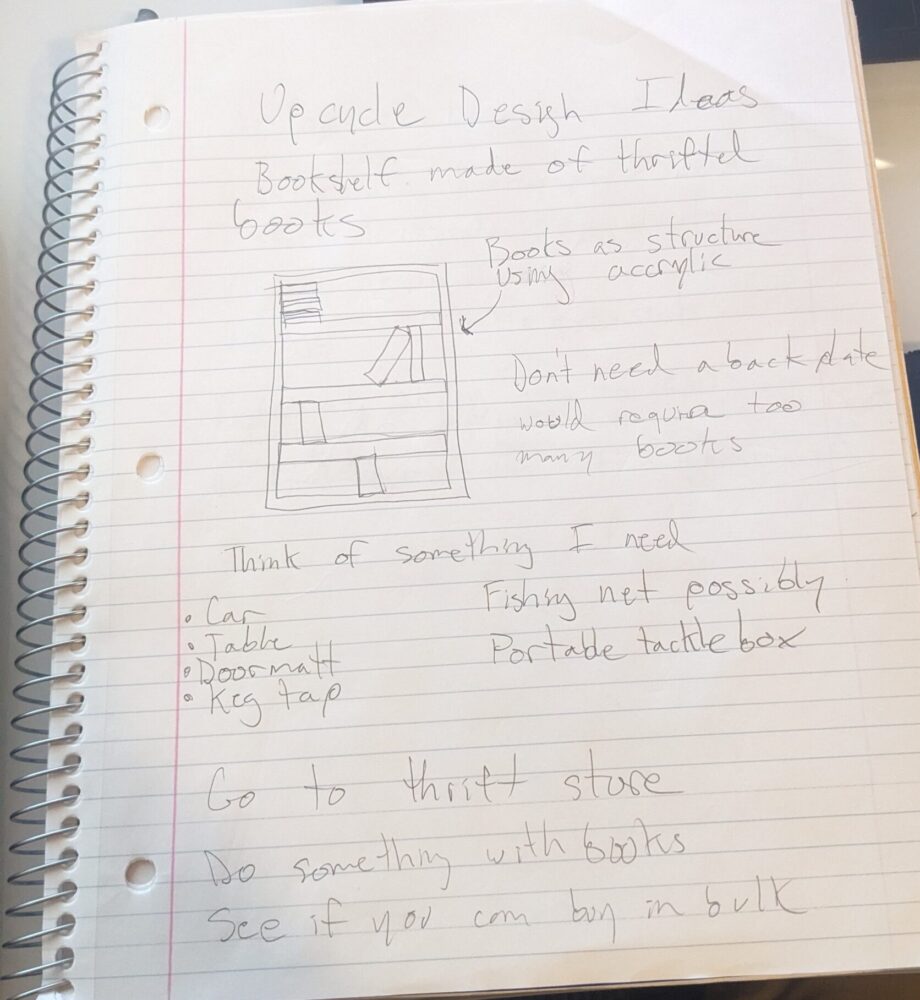 Upcycle Design Ideas
Bookshelf made of thrifted
books
Books as structure
using accrylic
Don't need a back plate
would require too
many books
Think of something I need
• Car
• Table
• Doormatt
• Keg tap
Fishing net possibly
Portable tackle box
Go to thrift store
Do something with books
See if you can buy in bulk